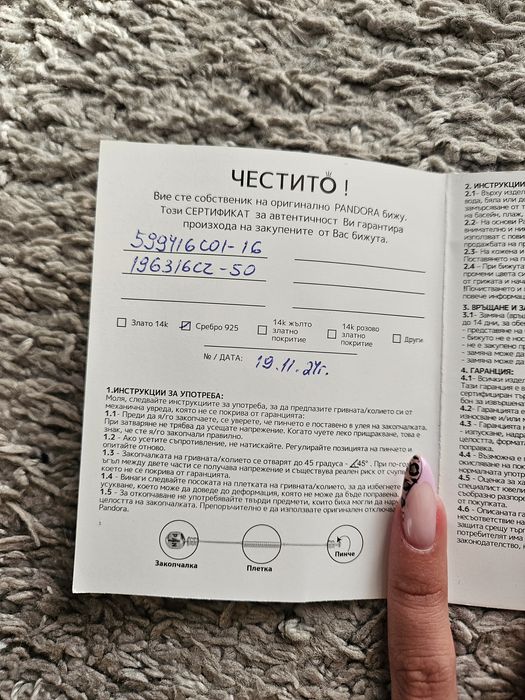 ЧЕСТИТО !
Вие сте собственик на оригинално PANDORA бижу.
Този СЕРТИФИКАТ за автентичност Ви гарантира
произхода на закупените от Вас бижута.
599416C01-16
196316CZ-50
Злато 14k
Сребро 925
14k жълто
златно
покритие
14k розово
златно
покритие
Други
№ / ДАТА: 19.11.24г.
1.ИНСТРУКЦИИ ЗА УПОТРЕБА:
Моля, следвайте инструкциите за употреба, за да предпазите гривната/колието си от
механична увреда, която не се покрива от гаранцията:
1.1- Преди да я/го закопчаете, се уверете, че пинчето е поставено в улея на закопчалката.
При затваряне не трябва да усещате напрежение. Когато чуете леко прищракване, това е
знак, че сте я/го закопчали правилно.
1.2 - Ако усетите съпротивление, не натискайте. Регулирайте позицията на пинчето и
опитайте отново.
1.3 - Закопчалката на гривната/колието се отварят до 45 градуса - 45°. При по-го
ъгъл между двете части се получава напрежение и съществува реален риск от счупв
което не се покрива от гаранцията.
1.4 - Винаги следвайте посоката на плетката на гривната/колието, за да избегнете
усукване, което може да доведе до деформация, която не може да бъде поправена.
1.5 - За откопчаване не употребявайте твърди предмети, които биха могли да нарушат
целостта на закопчалката. Препоръчително е да използвате оригинален отключва
Pandora.
Закопчалка
Плетка
Пинче
2. ИНСТРУКЦИИ
2.1- Върху издел
вода, бяла или до
замърсяване от т
на басейн, плаж,
2.2- На основи Pa
внимателно и ни
използват с пови
продажбата на пр
2.3- На кожена и
Поставянето на п
2.4 - При бижута
промени цвета си
от грижата и нач
!Почистването и
повече информац
3. ВРЪЩАНЕ И ЗА
3.1- Замяна (връщ
до 14 дни, за обе
- представяне на
- бижуто не е нос
- не е закупено пр
- замяна може да
- замяна може да
4. ГАРАНЦИЯ:
4.1- Всички издел
Тази гаранция е в
сертифициран тър
бон за извършена
4.2- Гаранцията с
износване и/или м
4.3 - Гаранцията
- изпускане, надра
целостта, формат
поправка.
4.4 - Възможна е м
окисляване на про
нетовия материал
4.5 - Оценка за ха
специалист ювели
съобразно разпоре
от покупката.
4.6 - Описаната га
несъответствие н
защита срещу търг
потребителят има
законодателство,